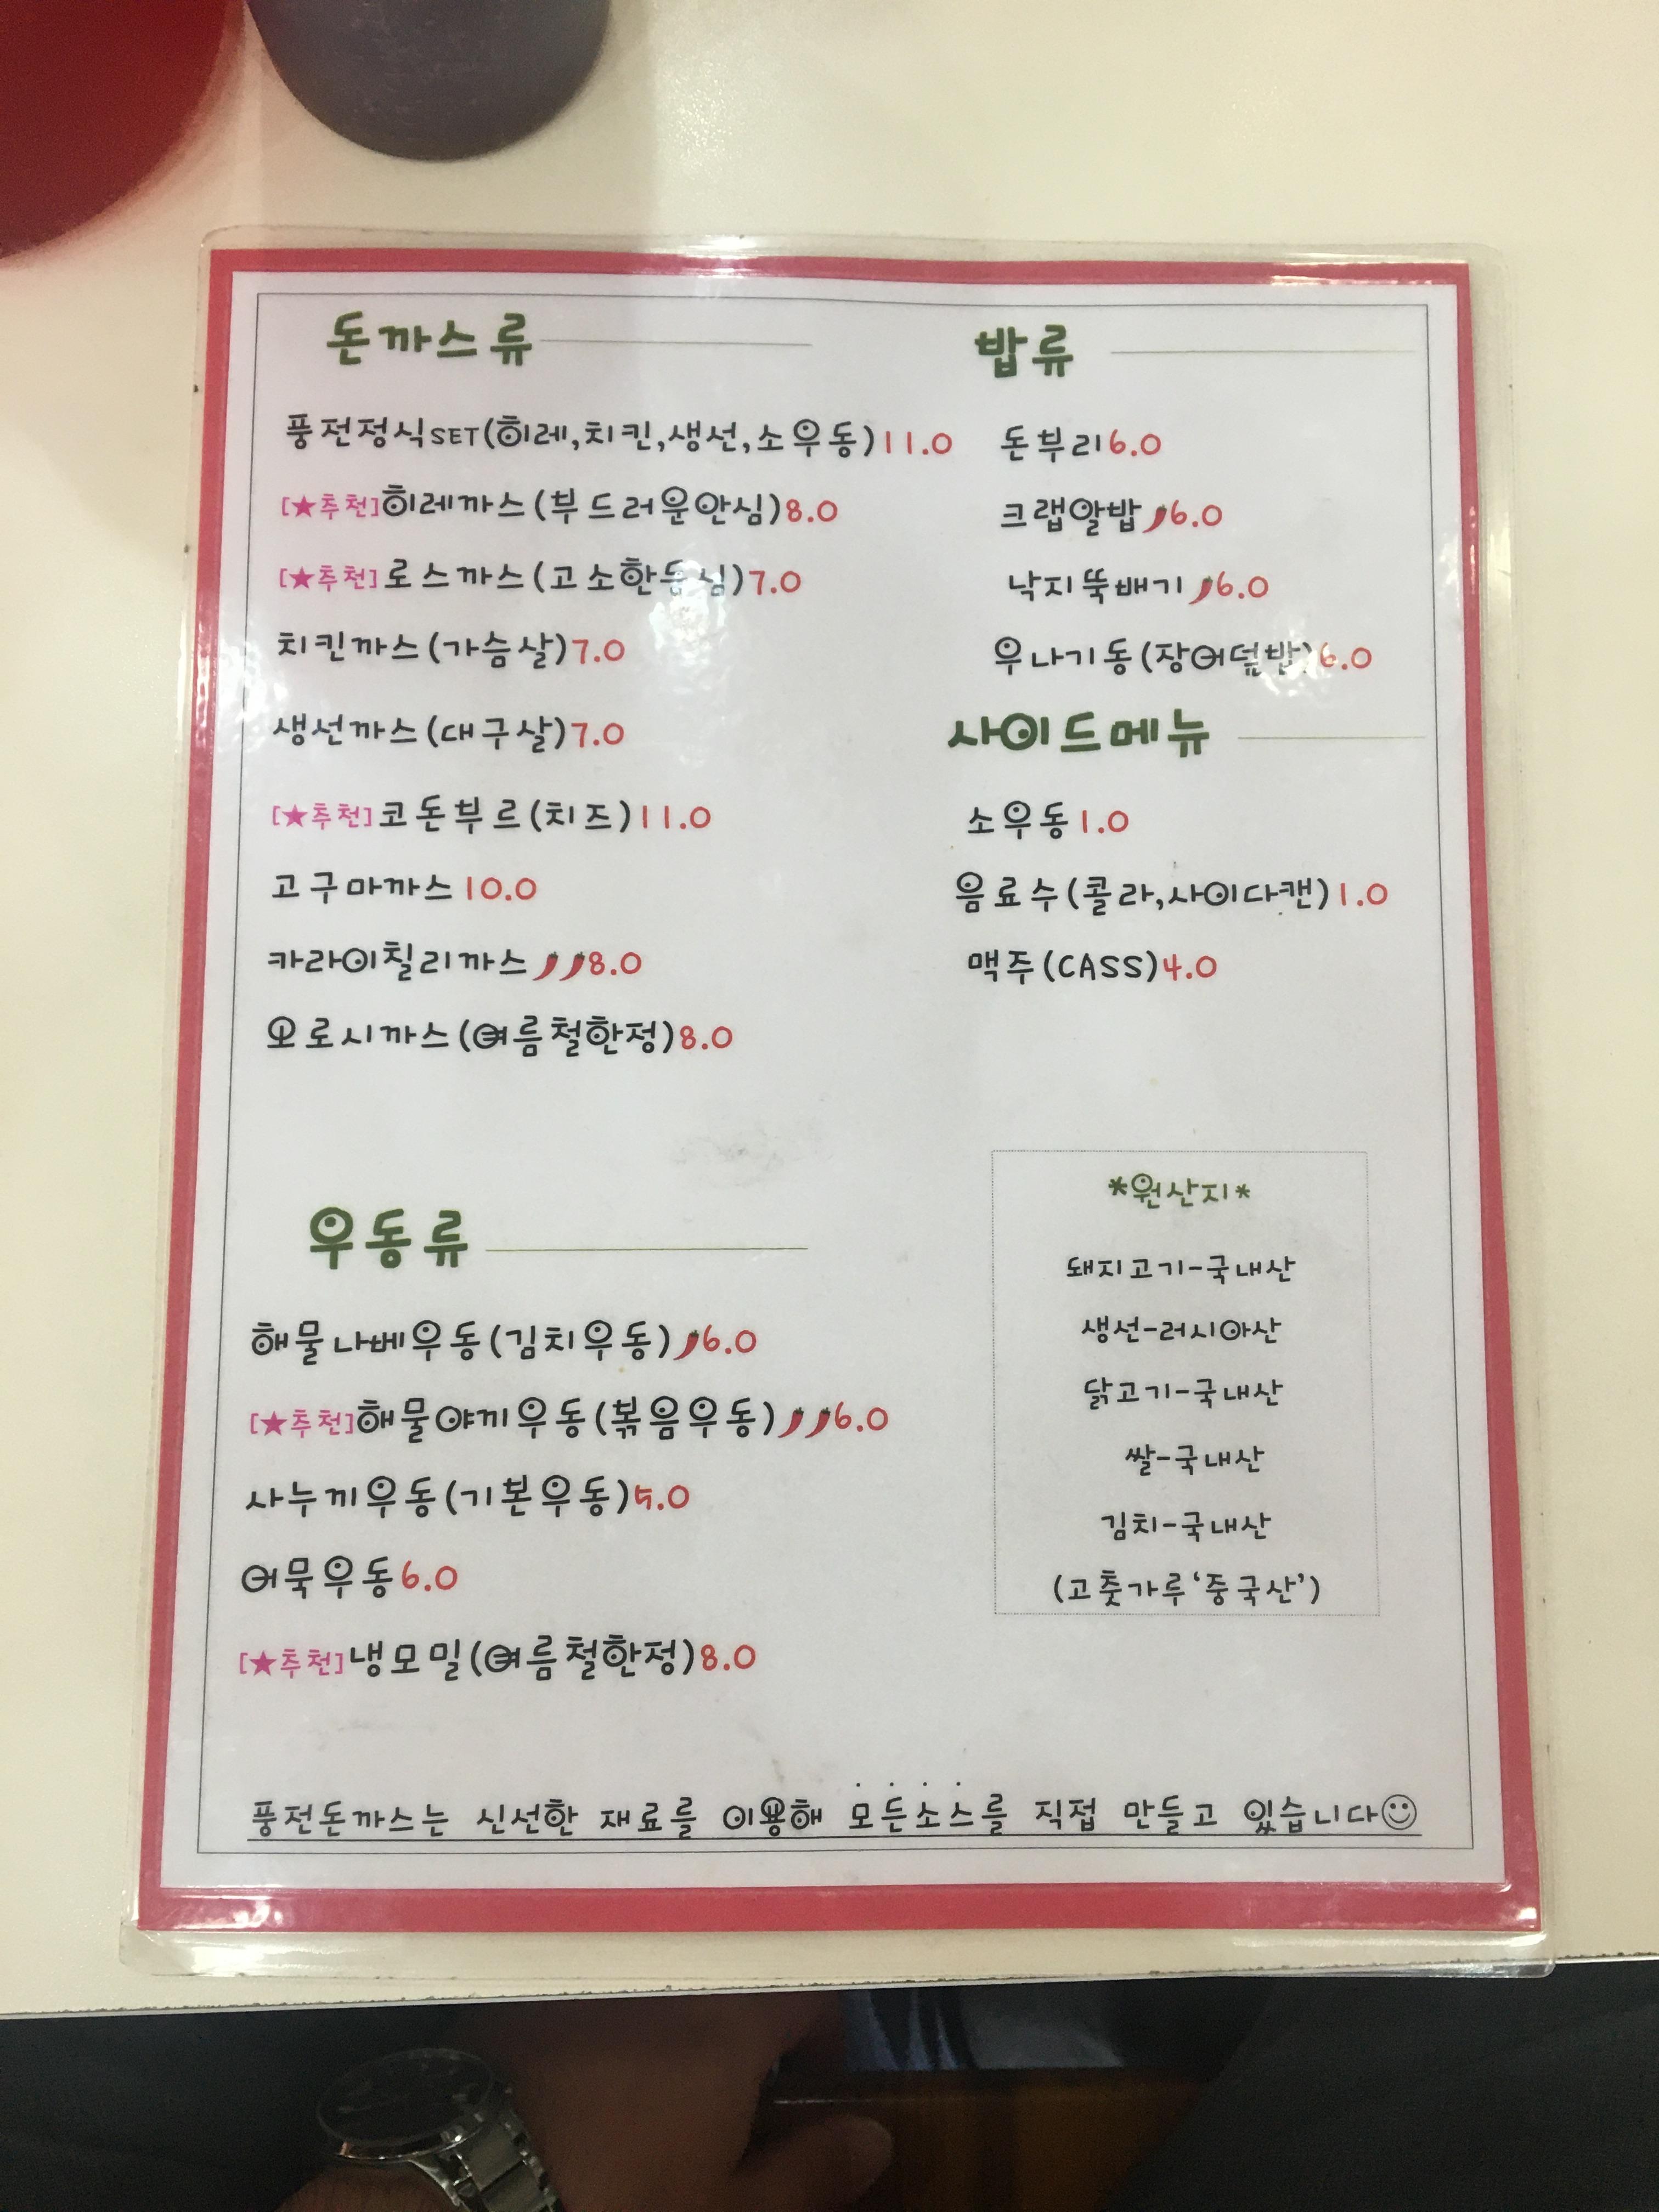 돈까스류
풍전정식SET(히레,치킨,생선,소우동)11.0
[★추천]히레까스(부드러운안심)8.0
[★추천]로스까스(고소한등심)7.0
치킨까스(가슴살)7.0
생선까스(대구살)7.0
[★추천]코돈부르(치즈)11.0
고구마까스10.0
카라이칠리까스8.0
오로시까스(여름철한정)8.0
우동류
해물나베우동(김치우동)6.0
[★추천]해물야끼우동(볶음우동)6.0
사누끼우동(기본우동)5.0
어묵우동6.0
[★추천]냉모밀(여름철한정)8.0
밥류
돈부리6.0
크랩알밥6.0
낙지뚝배기6.0
우나기동(장어덮밥)6.0
사이드메뉴
소우동1.0
음료수(콜라,사이다캔)1.0
맥주(CASS)4.0
*원산지*
돼지고기-국내산
생선-러시아산
닭고기-국내산
쌀-국내산
김치-국내산
(고춧가루‘중국산’)
풍전돈까스는 신선한 재료를 이용해 모든소스를 직접 만들고 있습니다☺